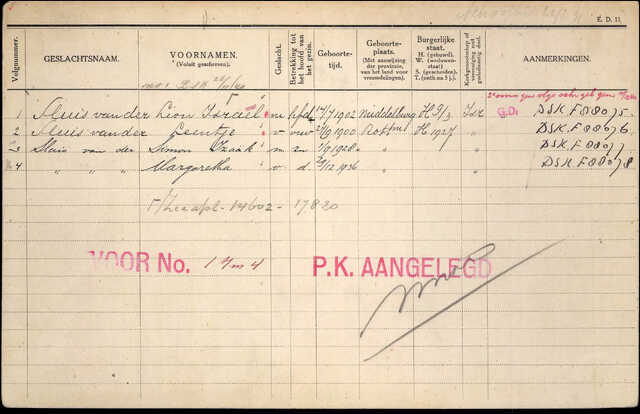 E. D. 11.
Volgnummer.
GESLACHTSNAAM.
VOORNAMEN.
(Voluit geschreven).
Geslacht.
Betrekking tot het hoofd van het gezin.
Geboorte-
tijd.
Geboorte-
plaats.
(Met aanwijzing der provincie, van het land voor vreemdelingen).
Burgerlijke staat.
H. (gehuwd).
W. (weduwenstaat)
S. (gescheiden).
T. (echt na 5 j.).
Kerkgenootschap of vereeniging met godsdienstig doel.
AANMERKINGEN.
1 Sluis van der Léon Israël m hfd 1902 Middelburg H Isr G.D. DSK. F 08075
2 Sluis van der Leentje v vrw 1900 Rott H 1927 " DSK. F 08076
3 Sluis van der Simon Izaak m zn 1928 " " DSK. F 08077
4 " " " Margaretha v d. 1936 " " DSK. F 08078
14602 - 17820
VOOR No. 1 t/m 4 P.K. AANGELEGD